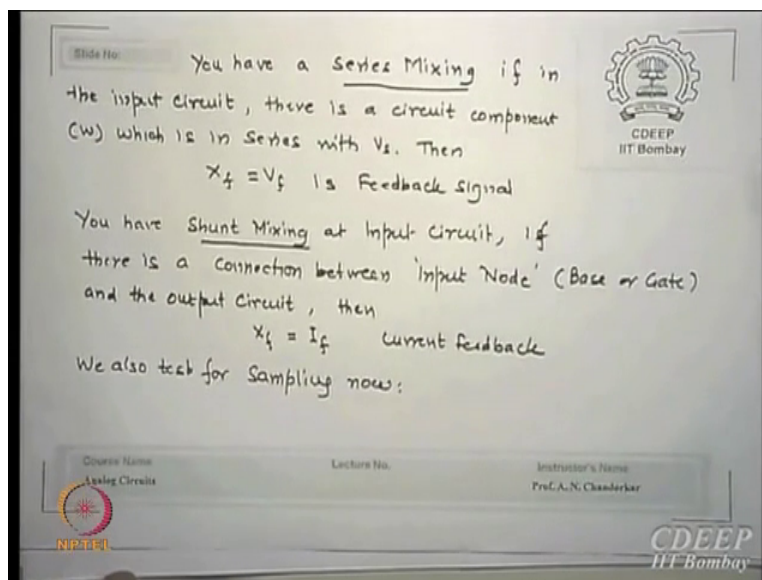 Slide No:
You have a Series Mixing if in
the input circuit, there is a circuit component
(W) which is in series with Vs. Then
Xf = Vf is Feedback signal
You have Shunt Mixing at Input Circuit, if
there is a Connection between 'Input Node' (Base or Gate)
and the output Circuit, then
Xf = If current feedback
We also test for Sampling now:
CDEEP
IIT Bombay
Course Name
Analog Circuits
Lecture No.
Instructor's Name
Prof. A. N. Chandorkar
NPTEL
CDEEP
IIT Bombay